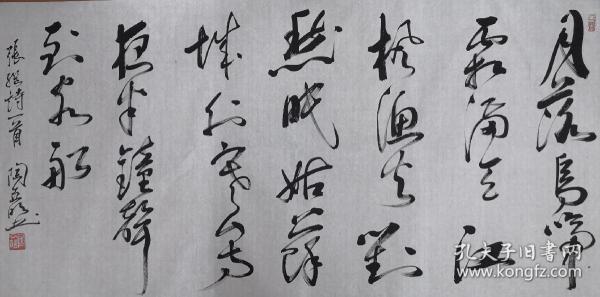 月落烏啼
霜滿天江
楓漁火對
愁眠姑蘇
城外寒山寺
夜半鐘聲
到客船
張繼詩一首 陶
孔夫子旧书网
www.kongfz.com